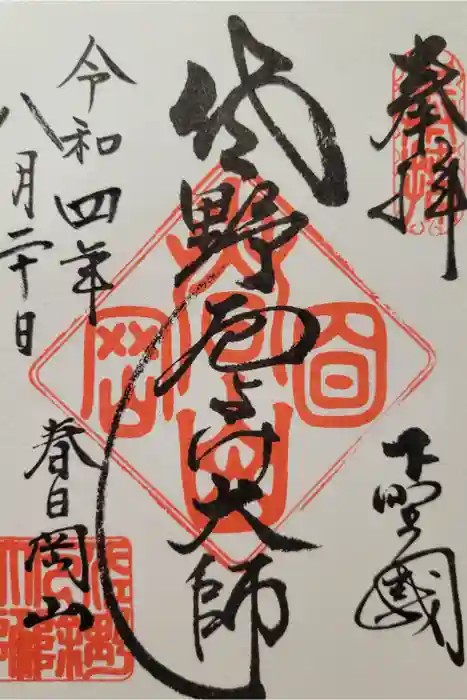 奉拝
下野國
佐野厄よけ大師
令和四年
八月二十日
春日岡山